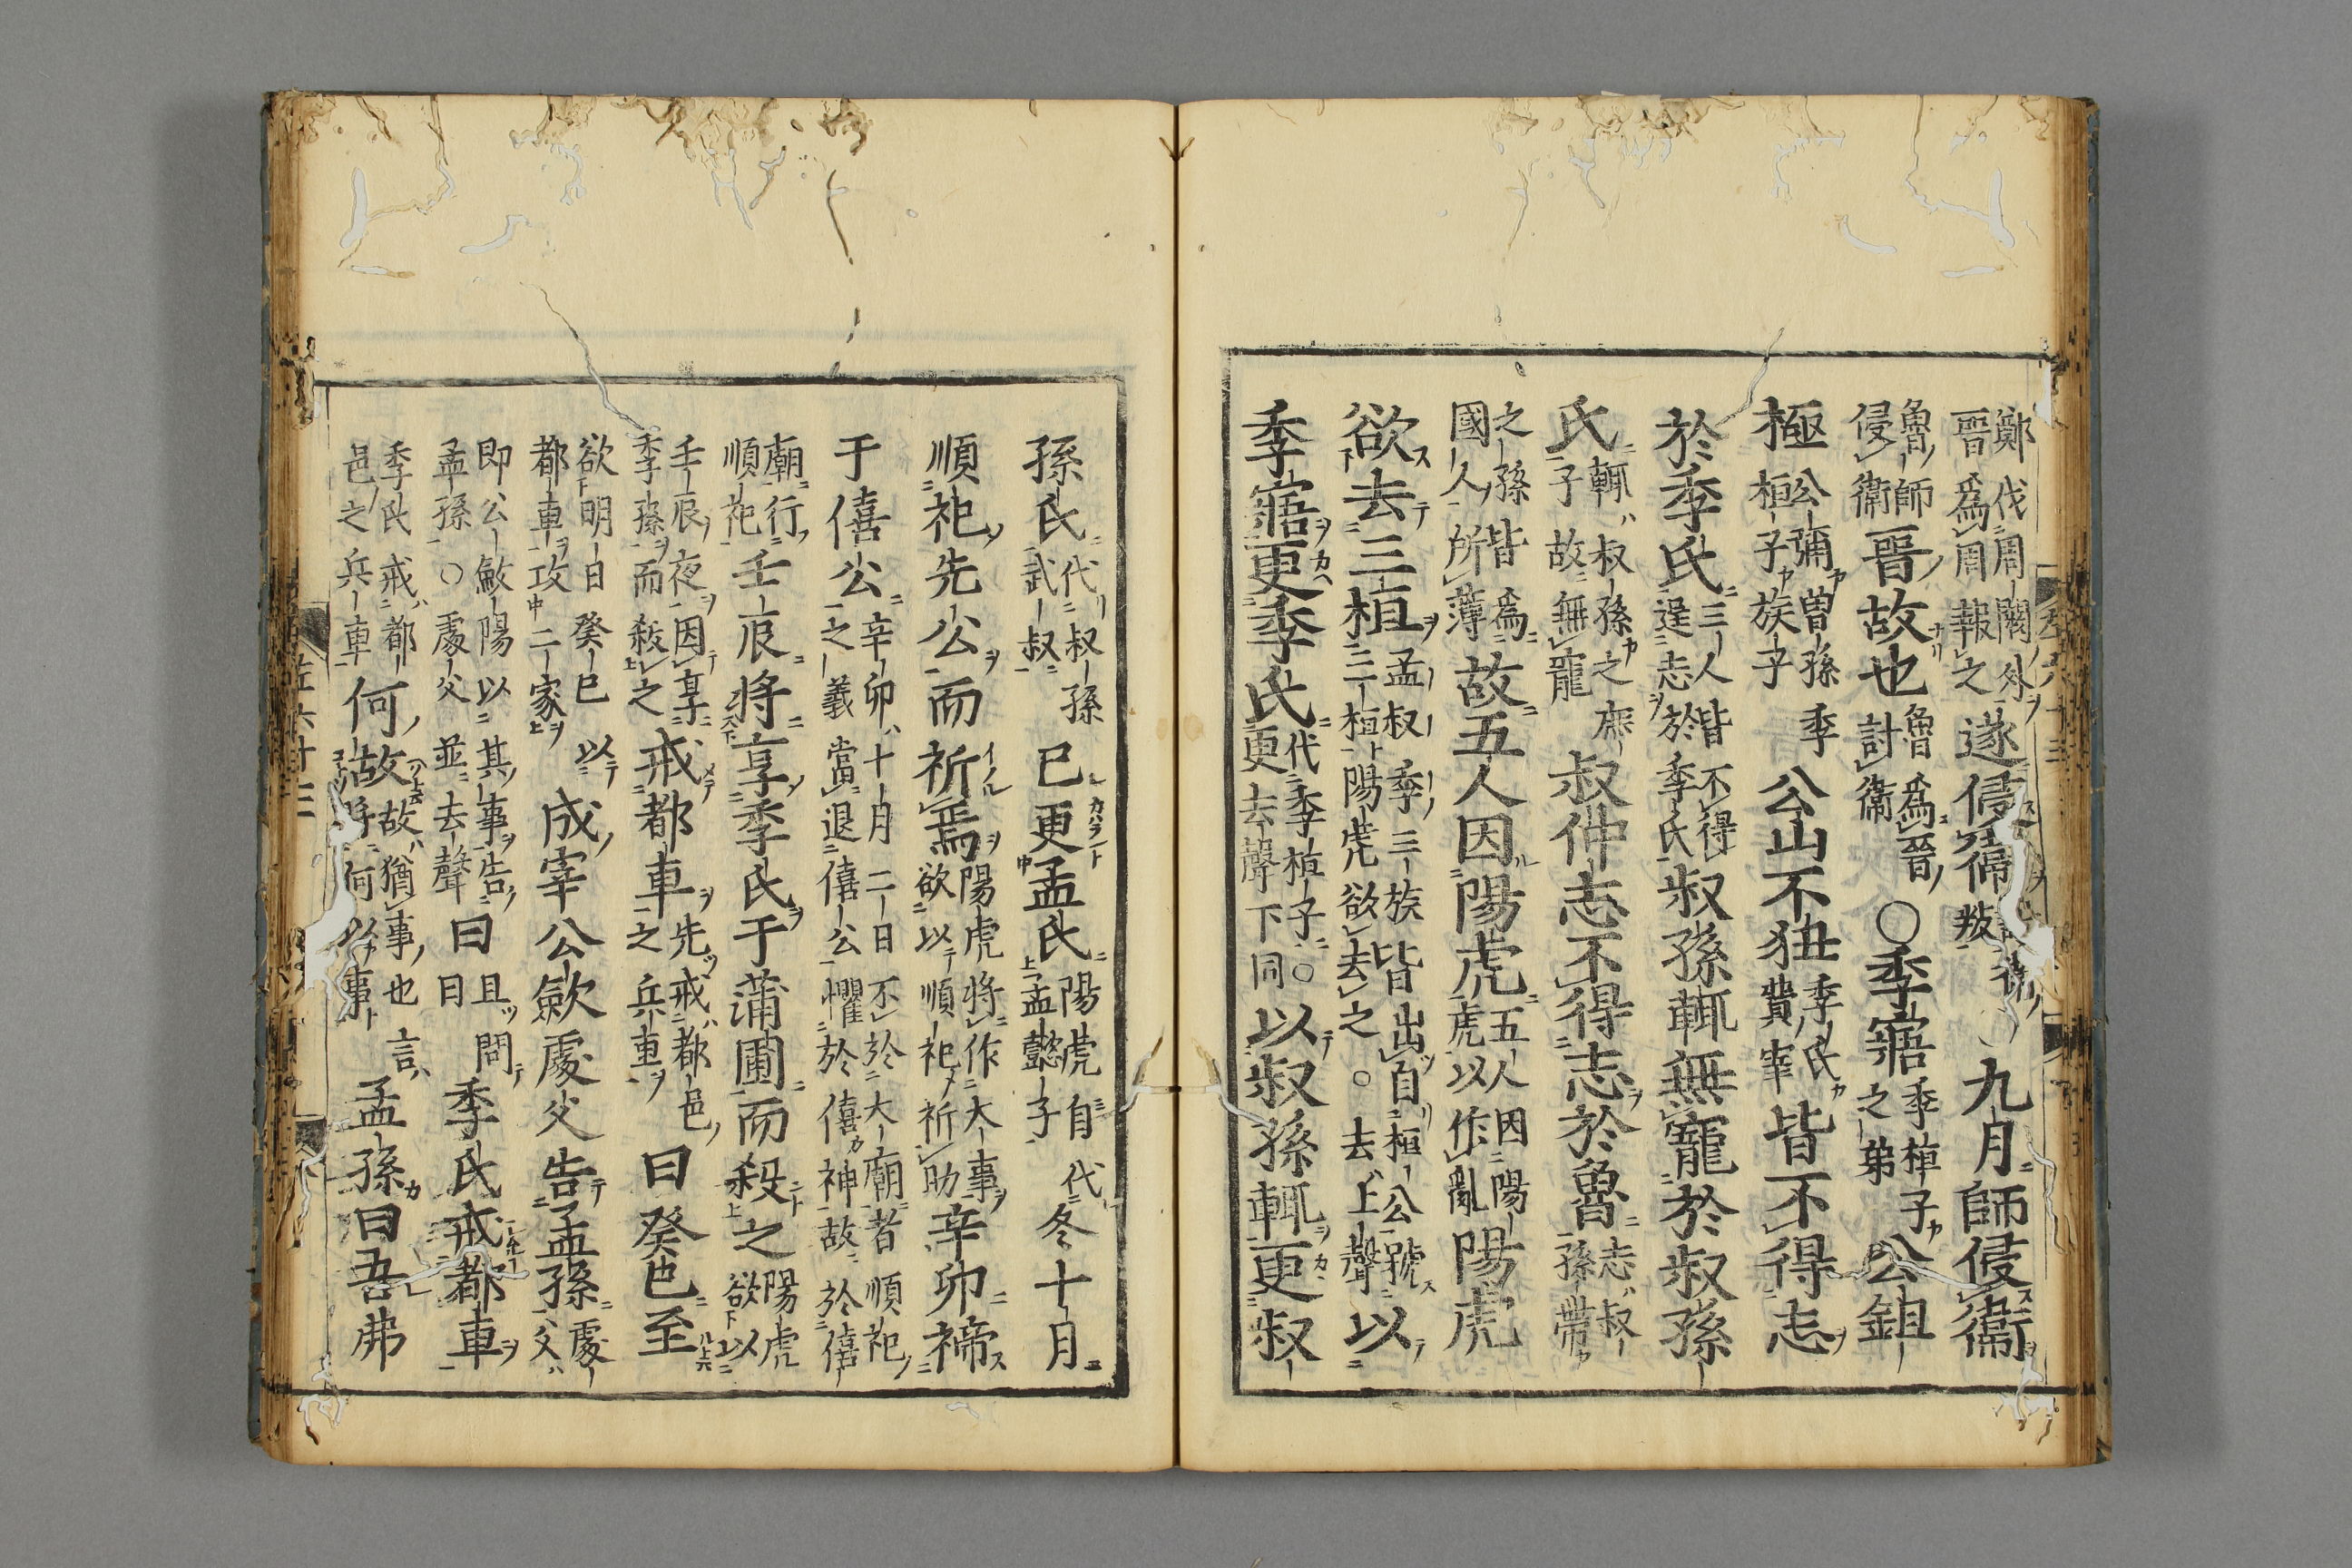 鄭伐周闕外晉爲周報之遂侵衞叛九月師侵衞
魯師侵衞晉故也魯爲晉討衞〇季寤季桓子之弟公鉏
極公彌曾孫季桓子族子公山不狃季氏費宰皆不得志
於季氏三人皆不得逞志於季氏叔孫輒無寵於叔孫
氏輒叔孫之庶子故無寵叔仲志不得志於魯志叔孫帶
之孫皆爲國人所薄故五人因陽虎五人因陽虎以作亂陽虎
欲去三桓孟叔季三族皆出自桓公號三桓陽虎欲去之〇去上聲以
季寤更季氏代季桓子〇更去聲下同以叔孫輒更叔
孫氏代叔孫武叔已更孟氏陽虎自代孟懿子冬十月
順祀先公而祈焉陽虎將作大事欲以順祀祈助辛卯禘
于僖公辛卯十月二日不於大廟者順祀之義當退僖公懼於僖神故於僖
廟行順祀壬辰將享季氏于蒲圃而殺之陽虎欲以
壬辰夜因享季孫而殺之戒都車先戒都邑之兵車曰癸巳至
欲明日癸巳以都車攻二家成宰公歛處父告孟孫處父
即公歛陽以其事告孟孫〇處父並去聲曰且問曰季氏戒都車
季氏戒都邑之兵車何故故猶事也言將何以事孟孫曰吾弗